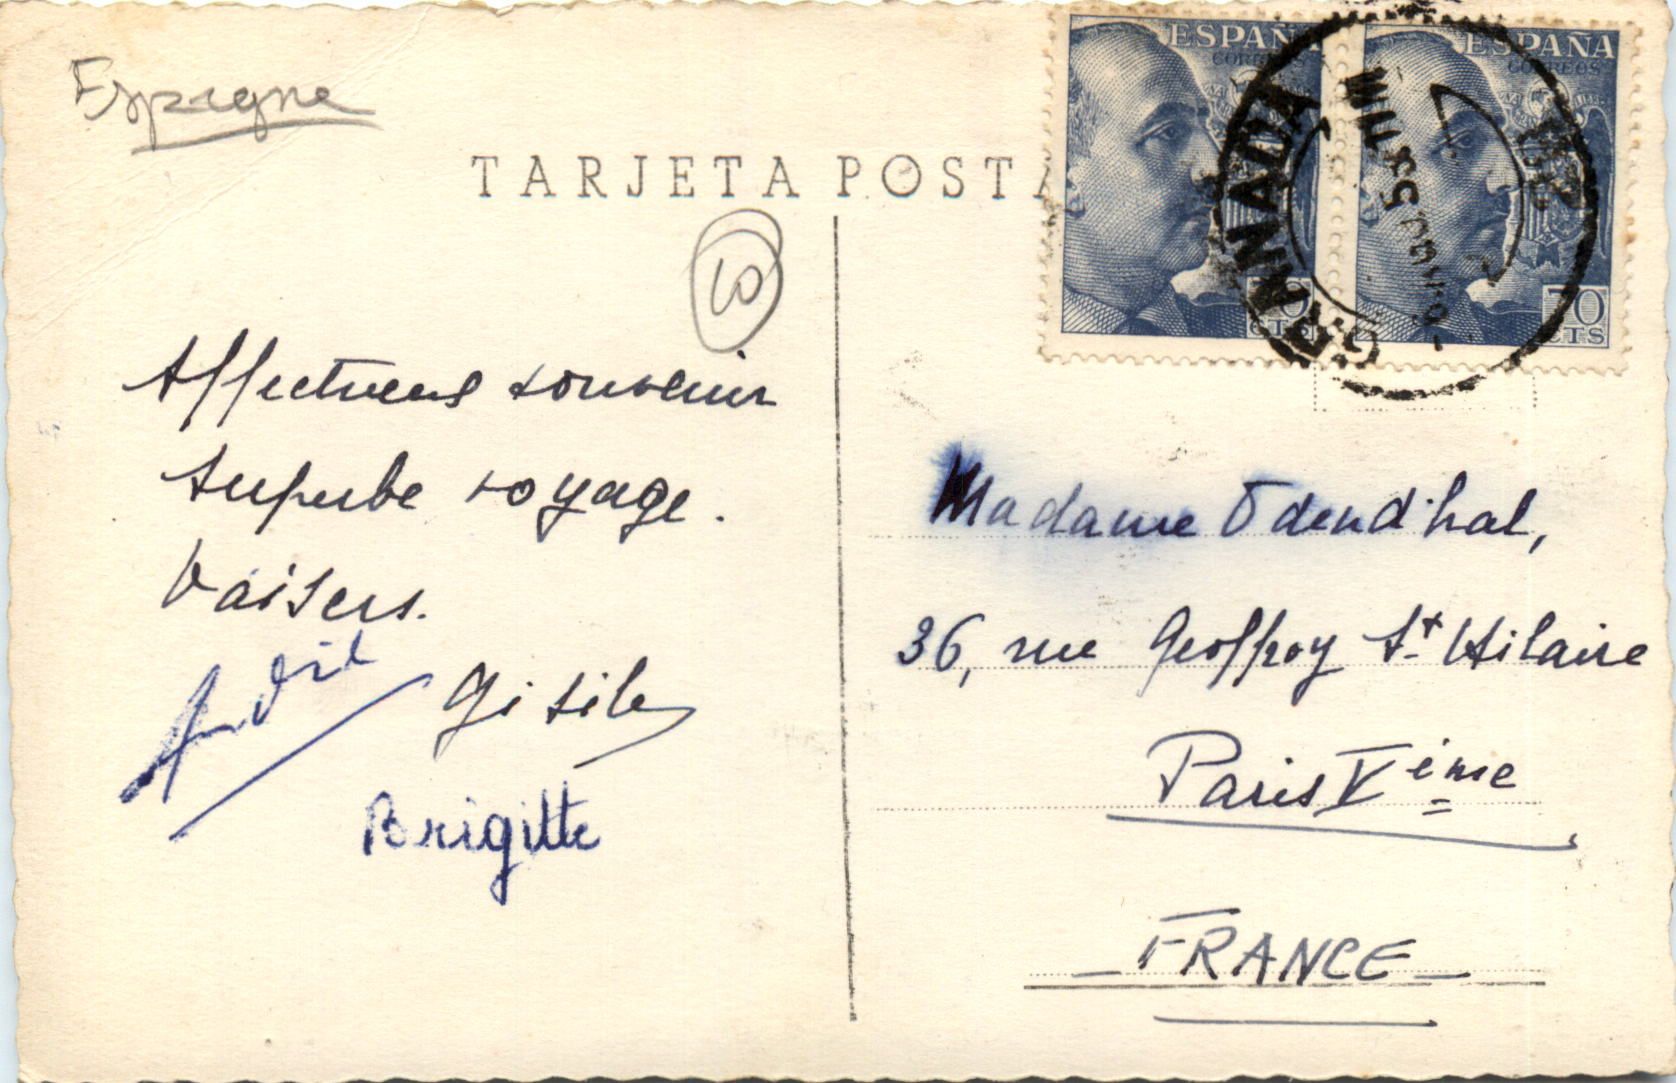 Espagne
TARJETA POSTA
ESPAÑA
CORREOS
70
CTS
ESPAÑA
CORREOS
70
CTS
GRANADA
10
Affectueux souvenir
Superbe voyage.
Baisers.
Gisile
Brigitte
Madame Odend'hal,
36, rue Geoffroy St Hilaire
Paris Vième
— FRANCE —